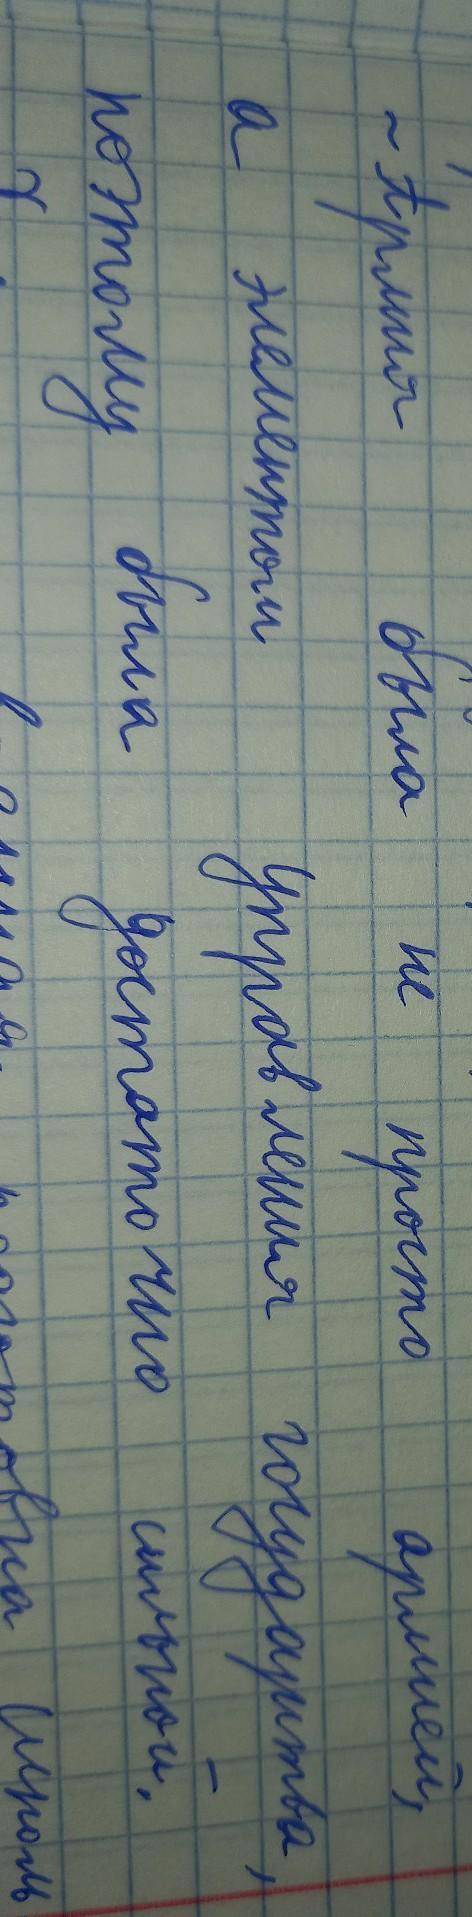 ~ Армия была не просто армией,
а элементом управления государства,
поэтому была достаточно сильной.